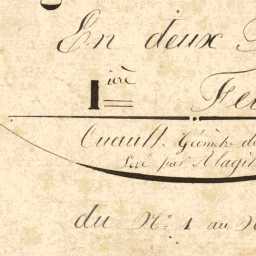 En deux
1ère Feu
Cuault Géomètre de
Levé par Alagil
du N° 1 au N